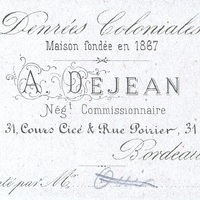 Denrées Coloniales
Maison fondée en 1887
A. DEJEAN
Négt Commissionnaire
31, Cours Cicé & Rue Poirier, 31
Bordeau
té par Mr